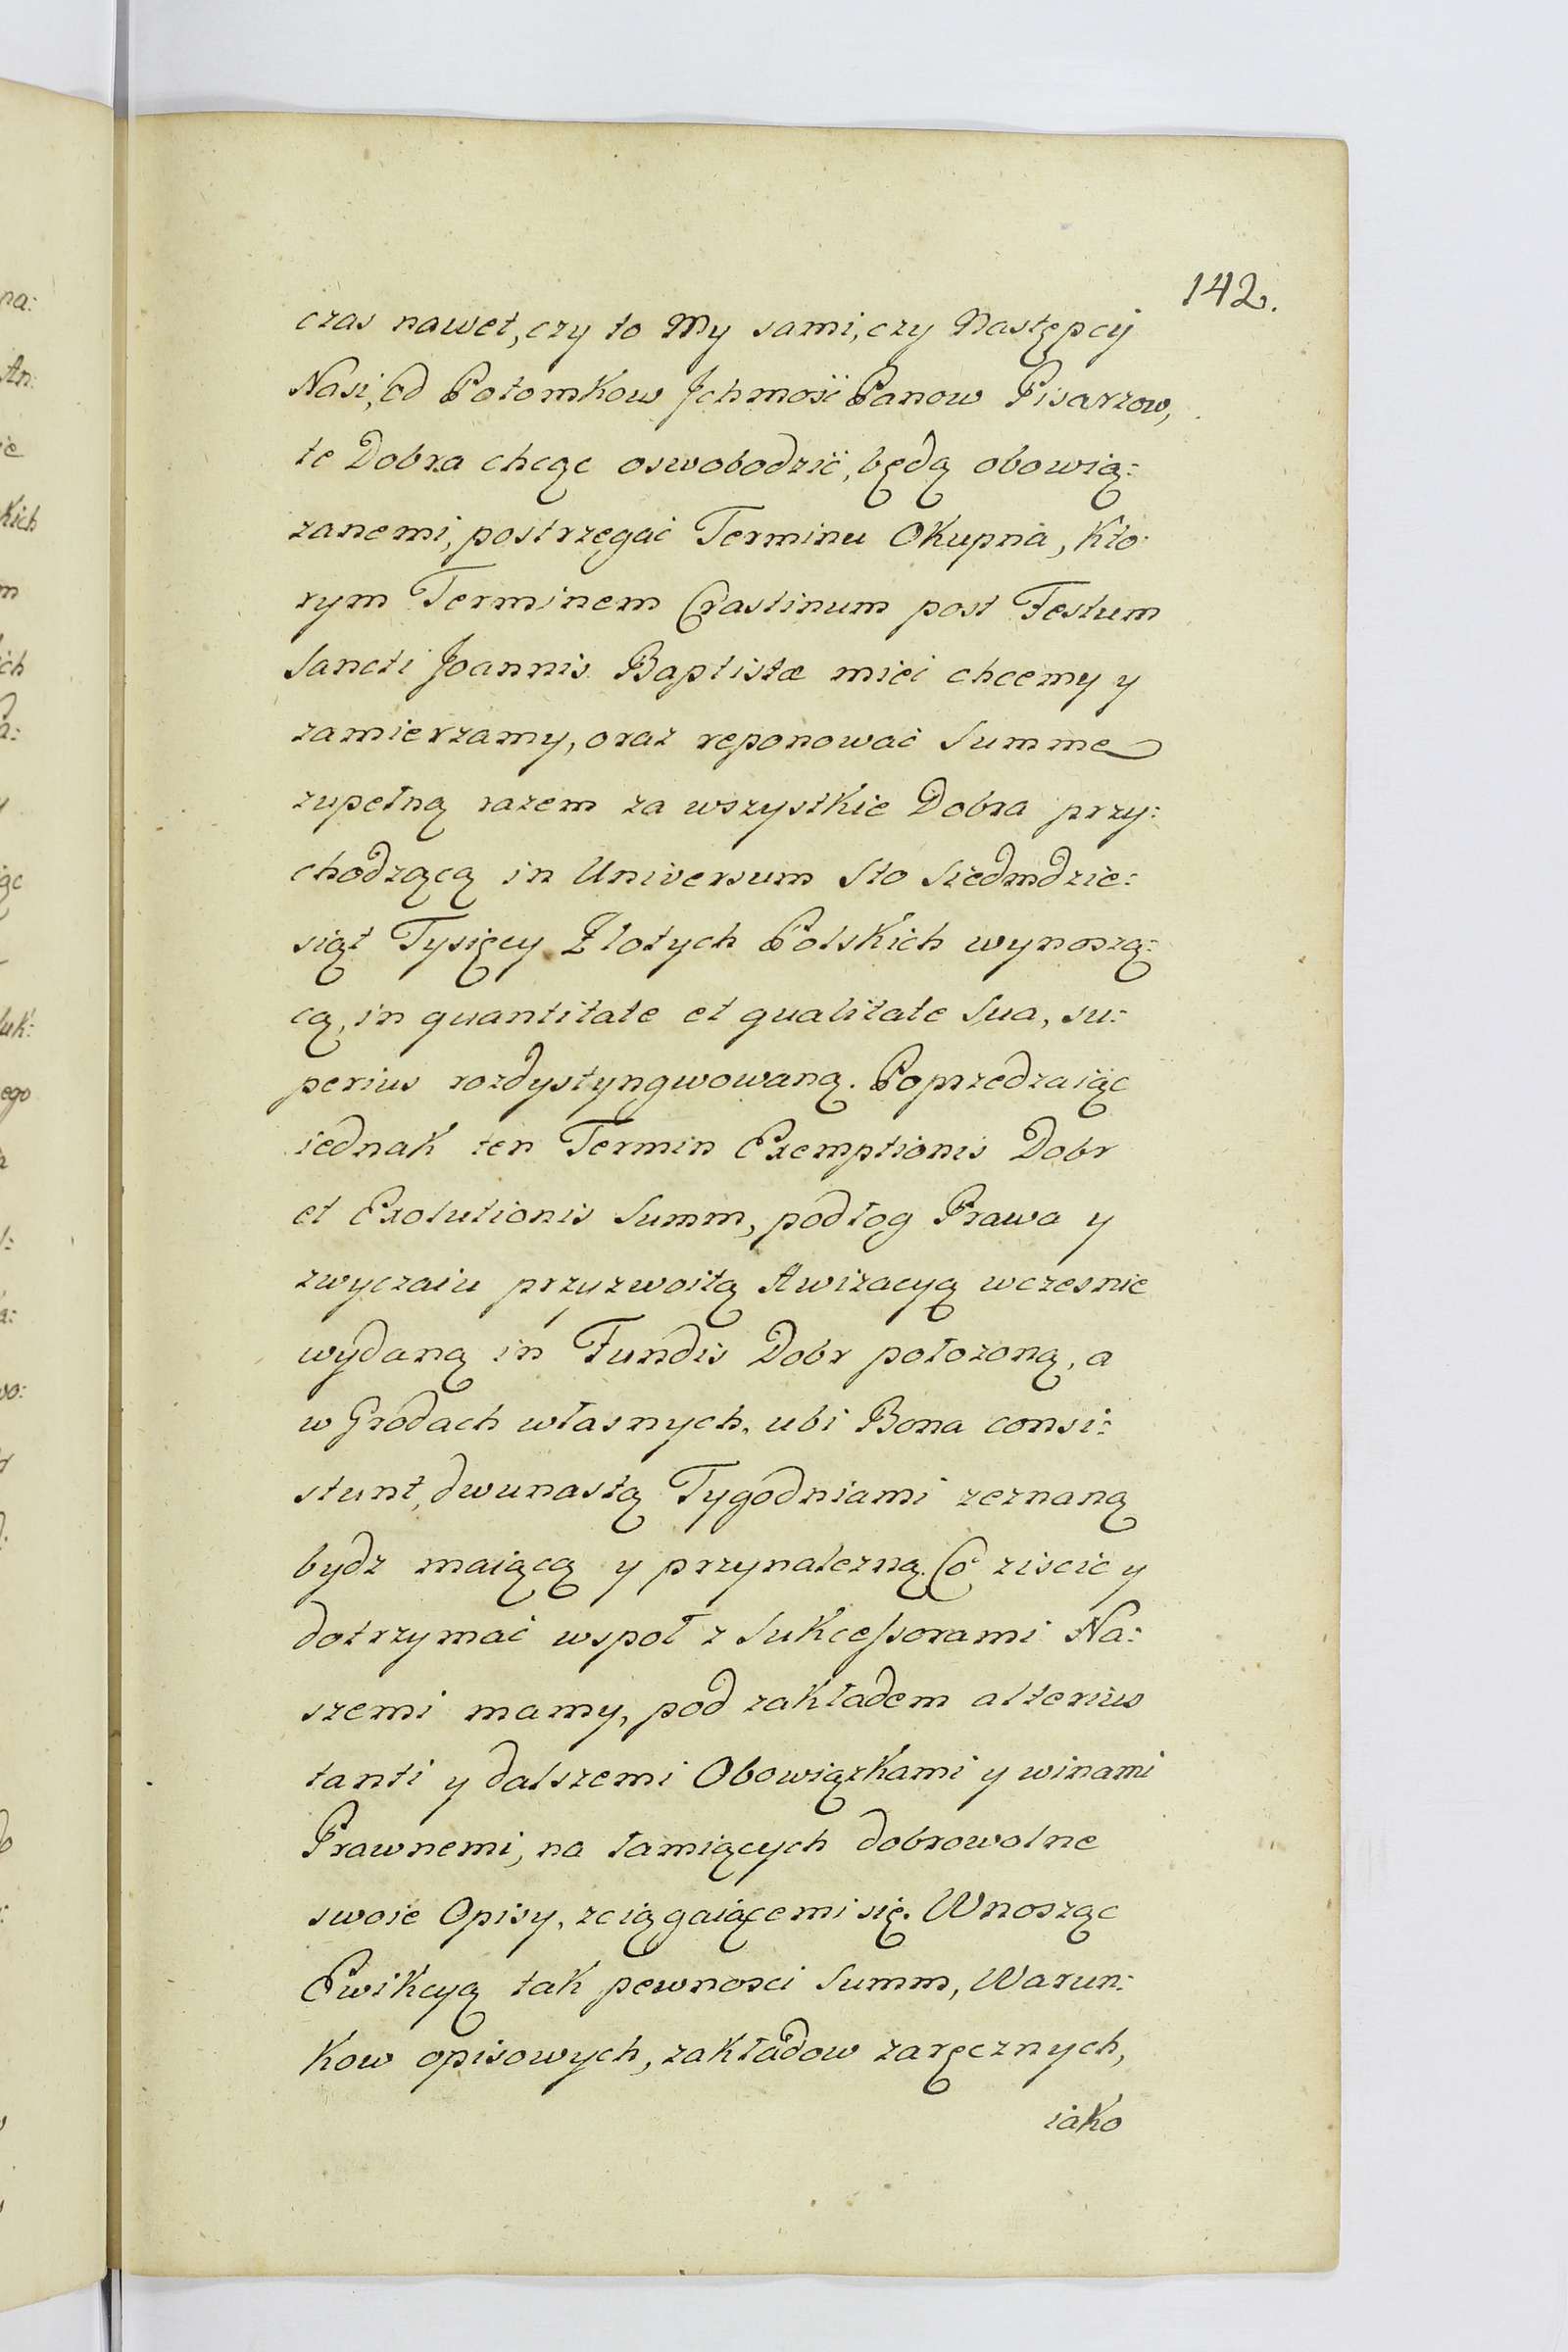 142.
czas nawet, czy to My sami, czy Następcy
Nasi, od Potomkow Ichmość Panow Pisarzow,
te Dobra chcąc oswobodzić, będą obowią:
zanemi, postrzegać Terminu Okupna, Kto:
rym Terminem Crastinum post Festum
Sancti Joannis Baptistæ mieć chcemy y
zamierzamy, oraz reponować Summę
zupełną razem za wszystkie Dobra przy:
chodzącą in Universum Sto Siedmdzie:
siąt Tysięcy Złotych Polskich wynoszą:
cą, in quantitate et qualitate Sua, su:
perius rozdystyngwowaną. Poprzedzaiąc
iednak ten Termin Exemptionis Dobr
et Exolutionis Summ, podłog Prawa y
zwyczaiu przyzwoitą Awizacyą wczesnie
wydaną in Fundis Dobr położoną, a
w Grodach własnych, ubi Bona consi:
stunt, dwunastą Tygodniami zeznaną
bydz maiącą y przynalezną. Co ziscić y
dotrzymać wspoł z Sukcessorami Na:
szemi mamy, pod zakładem alterius
tanti y dalszemi Obowiązkami y winami
Prawnemi, na łamiących dobrowolne
swoie Opisy, zciągaiącemi się. Wnosząc
Ewikcyą tak pewnosci Summ, Warun:
kow opisowych, zakładow zaręcznych,
iako
na:
An:
ie
kich
m
ich
a:
y
iąc
Suk:
ego
a:
wo: